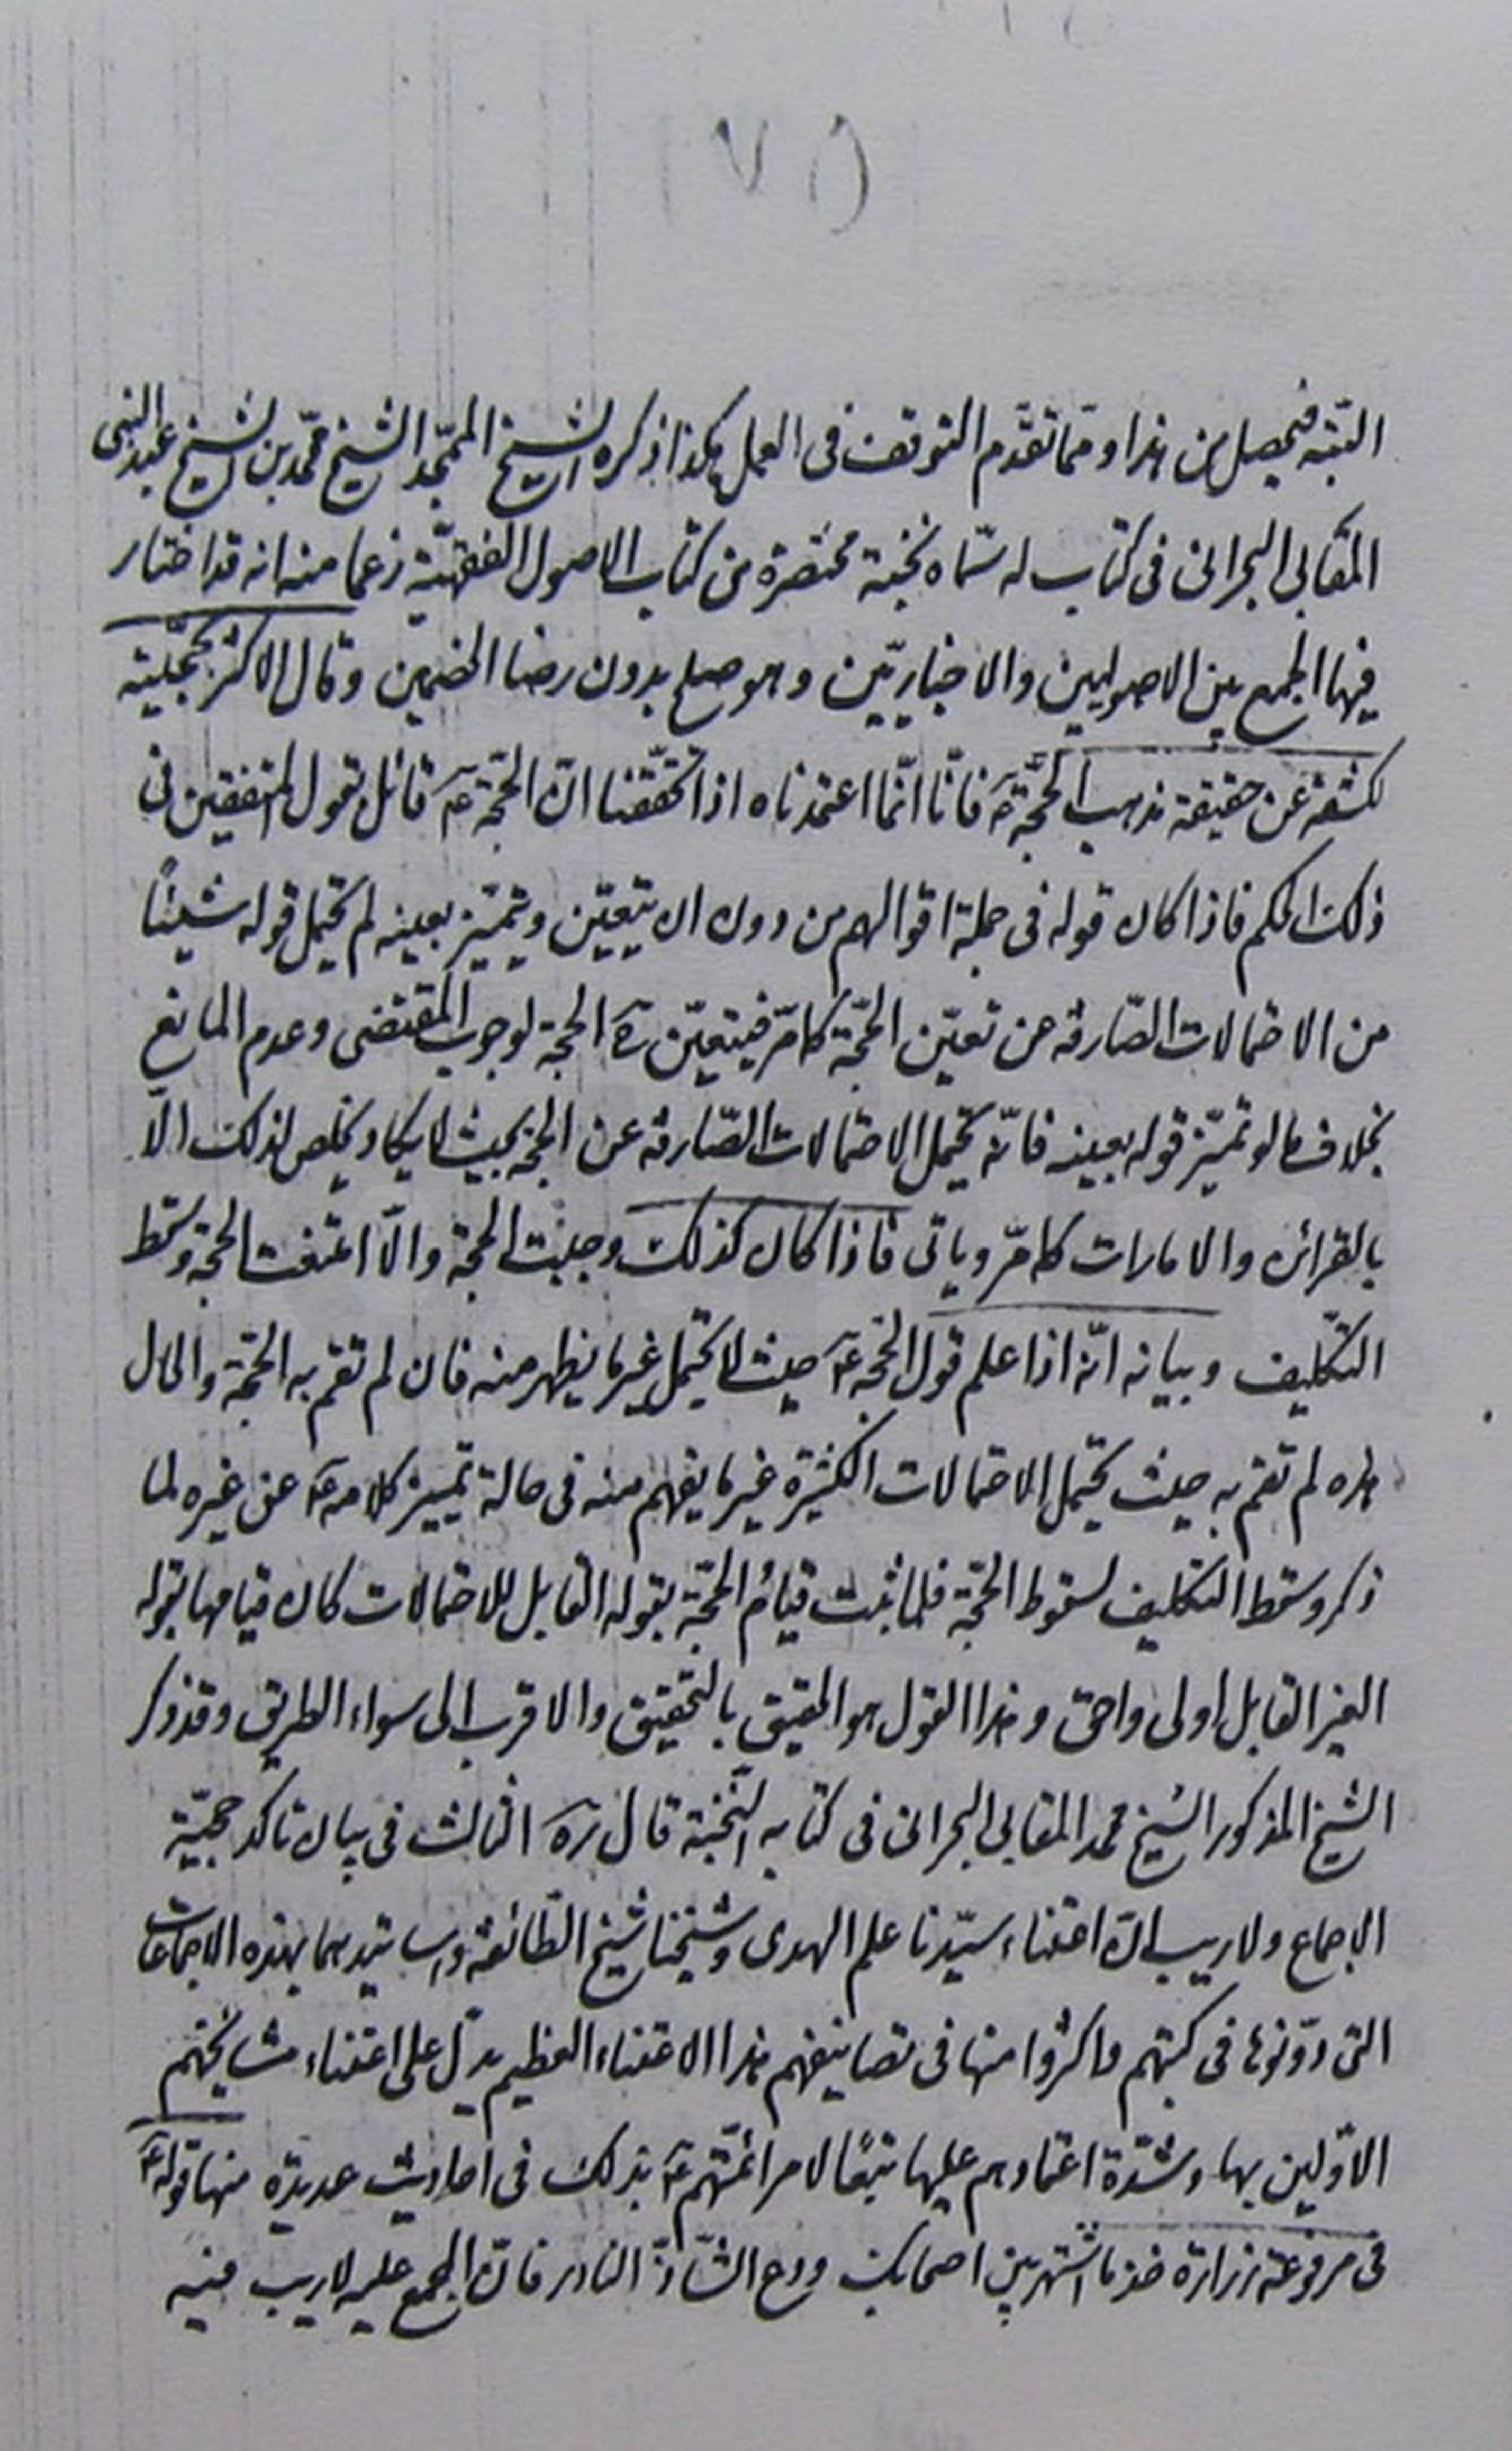 (٧١)
البتّه فيحصل من هذا و ممّا تقدّم التوقف فى العمل هكذا ذكره الشيخ الممجّد الشيخ محمّد بن الشيخ عبد النبى
المقابى البحرانى فى كتاب له سمّاه نخبة مختصرة من كتاب الاصول الفقهيّة زعما منه انه قد اختار
فيها الجمع بين الاصوليين والاخباريّين وهو صلح بدون رضا الخصمين وقال الاكثر بحجّيته
لكشفه عن حقيقة مذهب الحجّة ع فانّا انّما اعتمدناه اذا تحقّقنا انّ الحجّة ع قائل بقول المتفقين فى
ذلك الحكم فاذا كان قوله فى جملة اقوالهم من دون ان يتعيّن ويتميّز بعينه لم يحتمل قوله شيئاً
من الاحتمالات الصّارفه عن تعيّن الحجّة كما مرّ فيتعيّن ح الحجة لوجوب المقتضى وعدم المانع
بخلاف ما لو تميّز قوله بعينه فانّه يحتمل الاحتمالات الصّارفه عن الحجّة بحيث لا يكاد يخلص لذلك الّا
بالقرائن والامارات كما مرّ وياتى فاذا كان كذلك وجبت الحجة والّا انتفت الحجة وسقط
التكليف وبيانه انّه اذا علم قول الحجّة ع حيث لا يحتمل غير ما يظهر منه فان لم تقم به الحجّة والحال
هذه لم تقم به حيث يحتمل الاحتمالات الكثيرة غير ما يفهم منه فى حالة تمييز كلامه ع عن غيره لما
ذكر وسقط التكليف لسقوط الحجّة فلما ثبت قيام الحجّة بقوله القابل للاحتمالات كان قيامها بقوله
الغير القابل اولى واحق وهذا القول هو الحقيق بالتحقيق والاقرب الى سواء الطريق وقد ذكر
الشيخ المذكور الشيخ محمد المقابى البحرانى فى كتابه النّخبة قال ره الثالث فى بيان تاكد حجيّة
الاجماع ولا ريب انّ اعتناء سيّدنا علم الهدى وشيخنا شيخ الطّائفة واساتيدهما بهذه الاجماعات
التى دوّنوها فى كتبهم واكثروا منها فى تصانيفهم هذا الاعتناء العظيم يدلّ على اعتناء مشايخهم
الاوّلين بها وشدّة اعتمادهم عليها تبعًا لامر ائمّتهم ع بذلك فى احاديث عديدة منها قوله ع
فى مرفوعة زرارة خذ ما اشتهر بين اصحابك ودع الشّاذّ النادر فانّ المجمع عليه لا ريب فيه